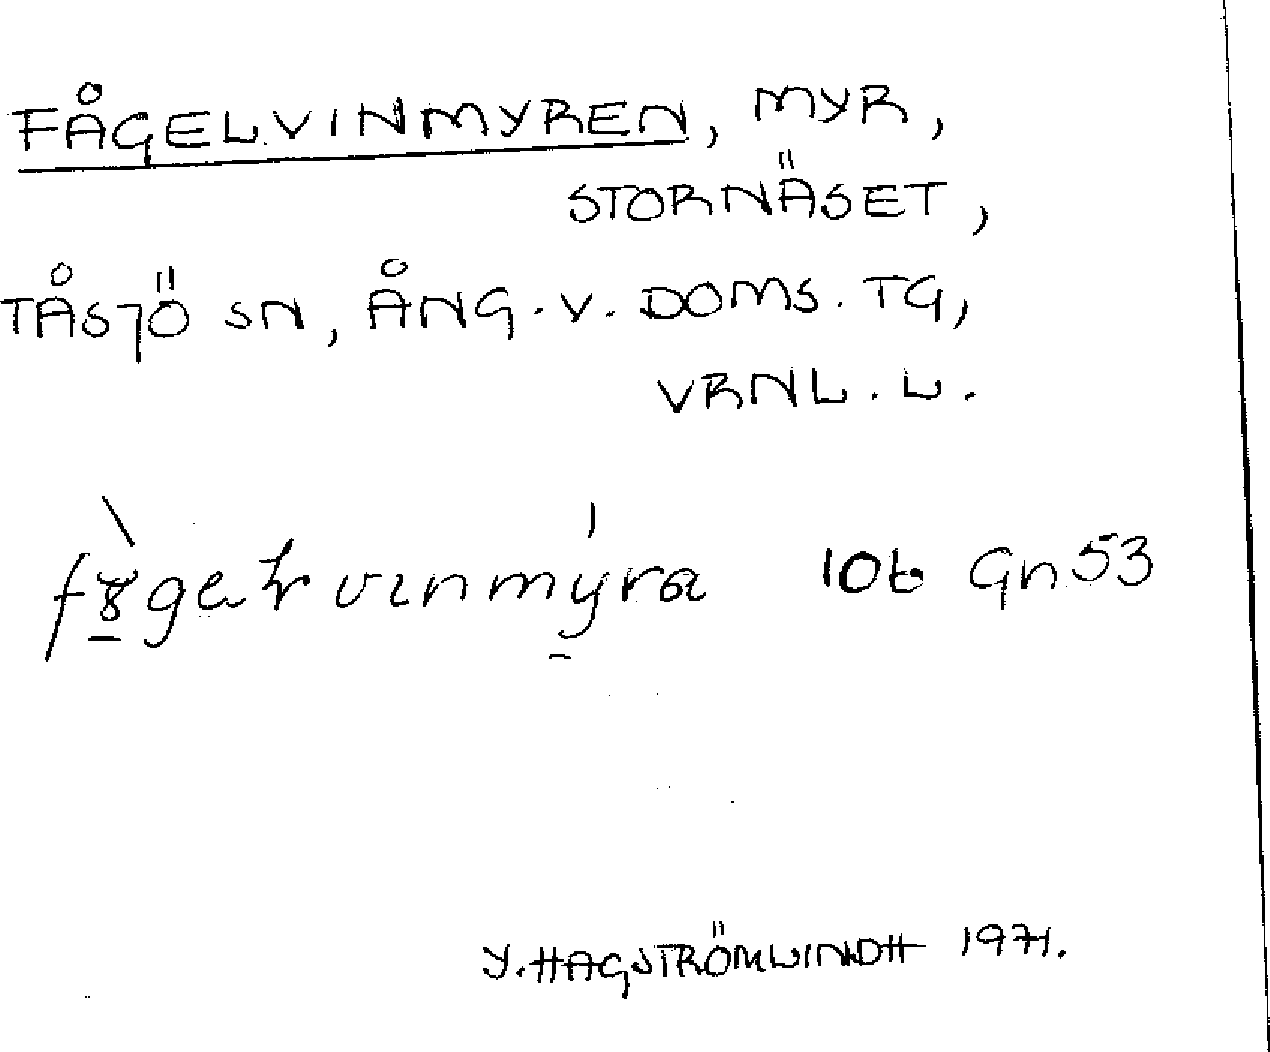 FÅGELVINMYREN, MYR,
STORNÄSET,
TÅSJÖ SN, ÅNG. V. DOMS. TG,
VRNL. L.
10b Gn53
Y. HAGSTRÖMLINDH 1971.